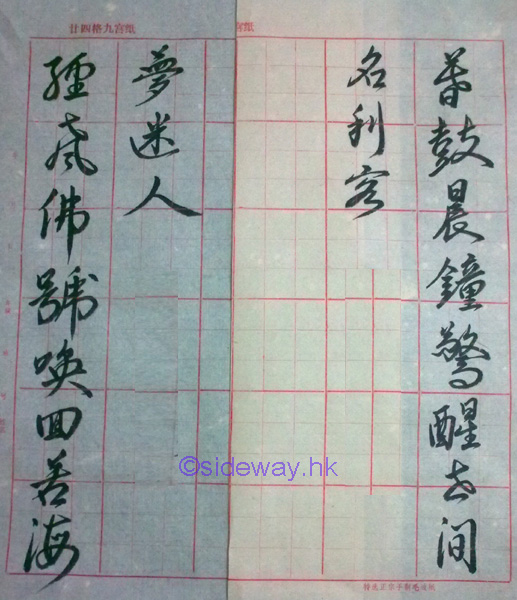 廿四格九宮紙
宮紙
暮鼓晨鐘驚醒世間
名利客
夢迷人
經聲佛號喚回苦海
©sideway.hk